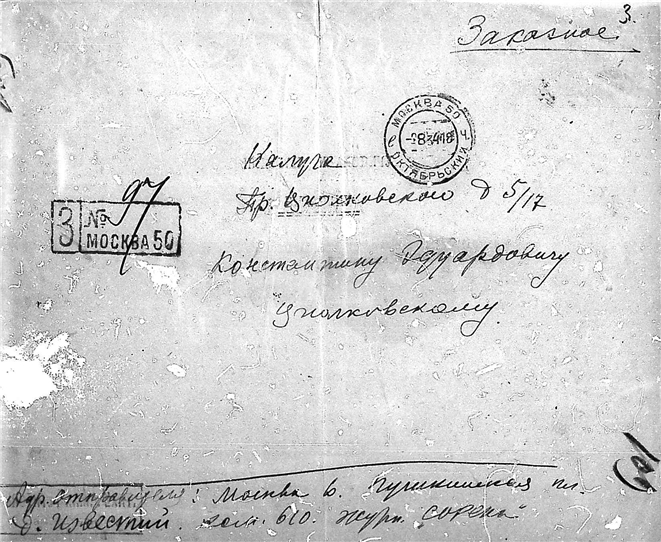 3.
Заказное
МОСКВА 50
ОКТЯБРЬСКИЙ
Калуга
Пр. Циолковского д 5/17
97
З №
МОСКВА 50
Константину Эдуардовичу
Циолковскому
109
Адр. отправителя: Москва 6. Пушкинская пл.
д. Известий. ком. 610. журн. "